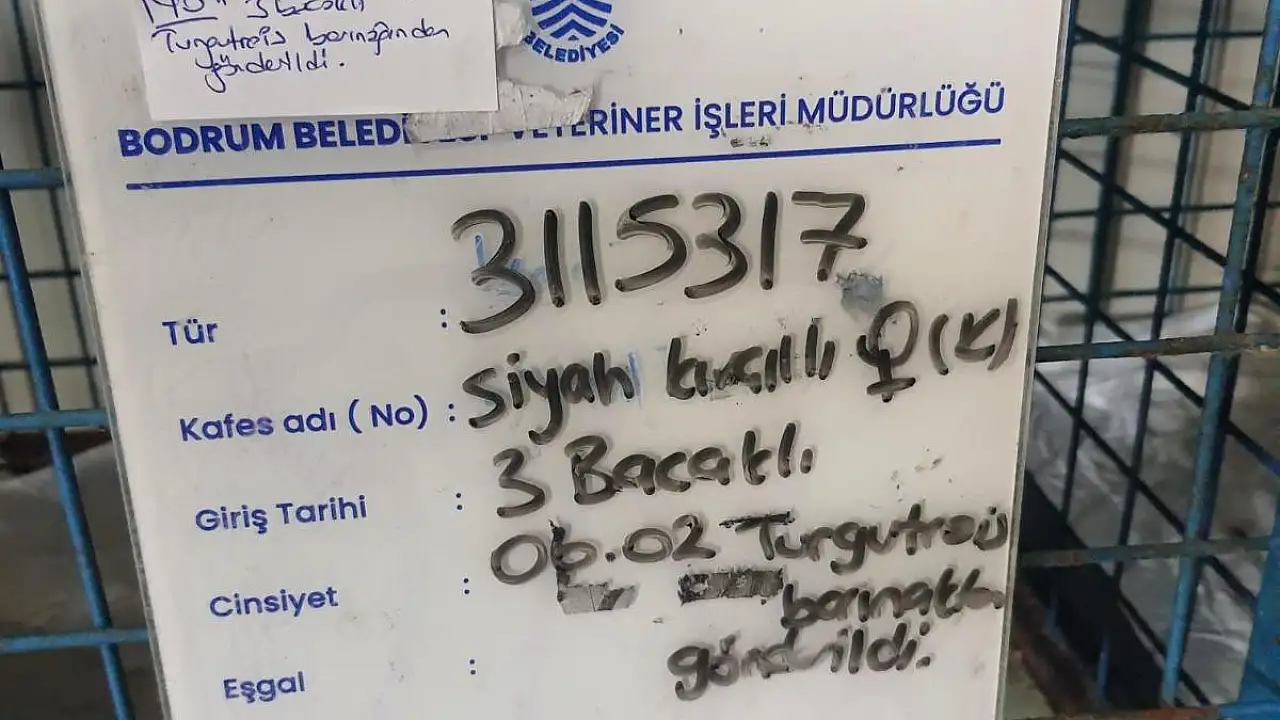 3 Bacaklı
Turgutreis barınağından
gönderildi.
BELEDİYESİ
BODRUM BELEDİ VETERİNER İŞLERİ MÜDÜRLÜĞÜ
3115317
Tür :
siyah kırçıllı ♀ (K)
Kafes adı ( No) :
3 Bacaklı
Giriş Tarihi :
06.02 Turgutreis
Cinsiyet :
gönderildi.
Eşgal :